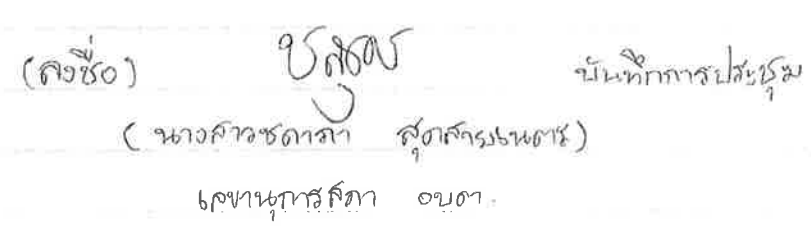 (ลงชื่อ) บันทึกการประชุม
( นางสาวชดาภา สุดสายเนตร)
เลขานุการสภา อบต.